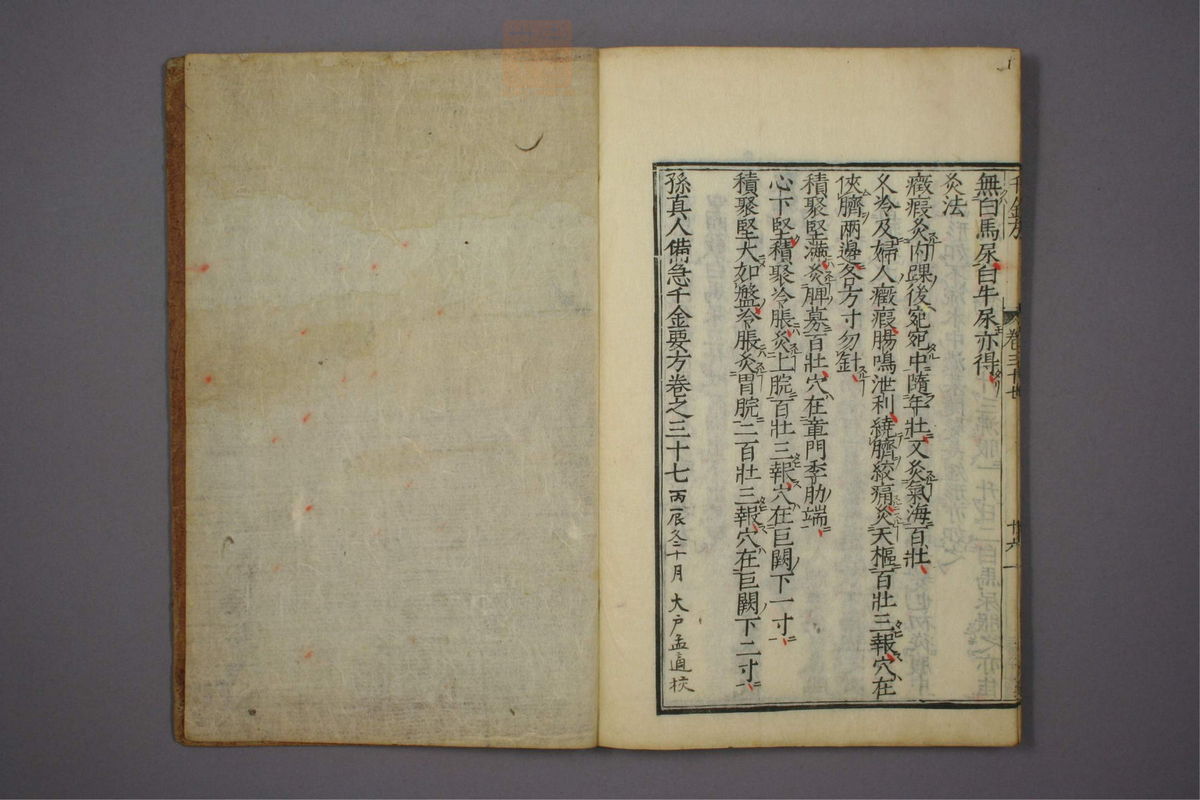 千金方 卷三十七 十六
無白馬尿白牛尿亦得
灸法
癥瘕灸内踝後宛宛中隨年壯又灸氣海百壯
久冷及婦人癥瘕腸鳴泄利繞臍絞痛灸天樞百壯三報穴在
俠臍兩邊各二寸勿針
積聚堅滿灸脾募百壯穴在章門季肋端
心下堅積聚冷脹灸上脘百壯三報穴在巨闕下一寸
積聚堅大如盤冷脹灸胃脘二百壯三報穴在巨闕下二寸
孫真人備急千金要方卷之三十七 丙辰冬十月 大戶孟通校